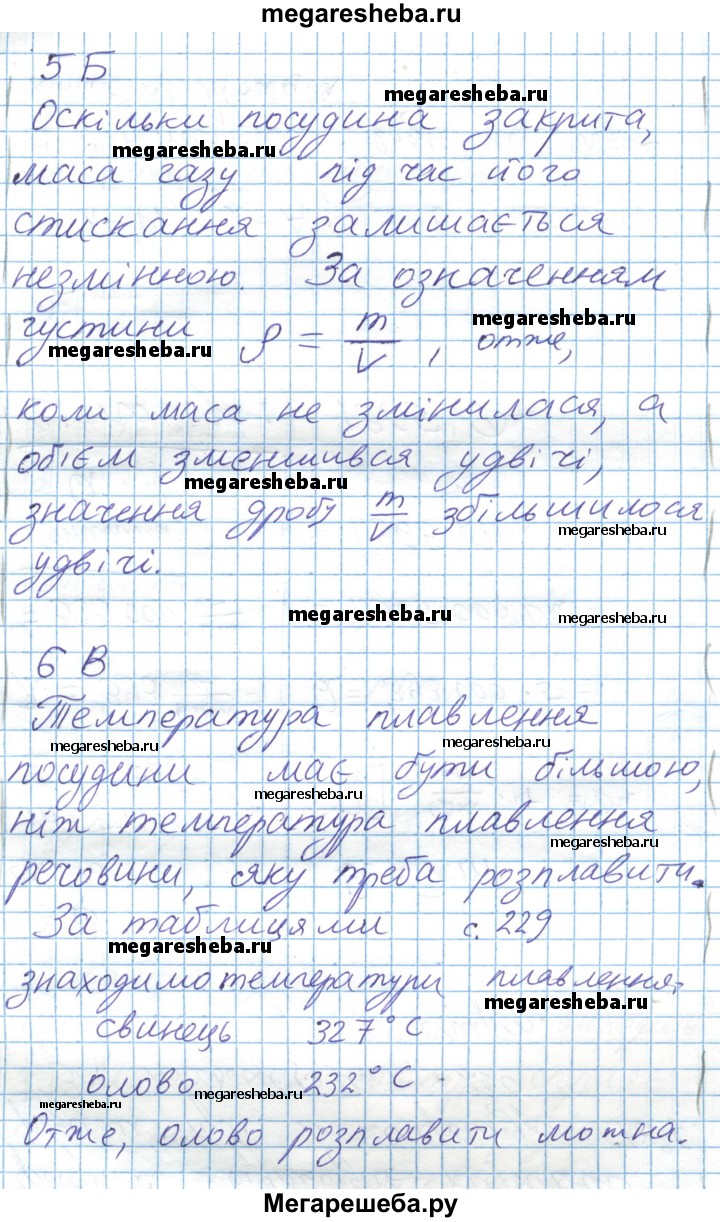 megaresheba.ru
5 Б
megaresheba.ru
Оскільки посудина закрита,
megaresheba.ru
маса газу під час його
стискання залишається
незмінною. За означенням
megaresheba.ru
густини ρ = m/V, отже,
megaresheba.ru
коли маса не змінилася, а
об'єм зменшився удвічі,
megaresheba.ru
значення дробу m/V збільшилося
megaresheba.ru
удвічі.
megaresheba.ru
6 В
Температура плавлення
megaresheba.ru megaresheba.ru
посудини має бути більшою,
megaresheba.ru
ніж температура плавлення
megaresheba.ru
речовини, яку треба розплавити.
За таблицями с. 229
megaresheba.ru
знаходимо температури плавлення:
megaresheba.ru
свинець 327°C
олово 232°C
megaresheba.ru megaresheba.ru
Отже, олово розплавити можна.
Мегарешеба.ру